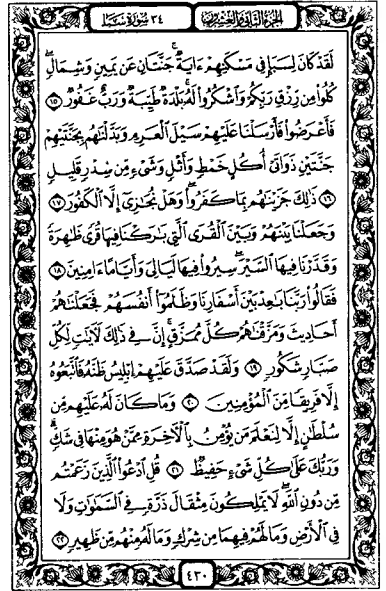 الجزء الثاني والعشرون ٣٤ سورة سبأ
لَقَدْ كَانَ لِسَبَإٍ فِي مَسْكَنِهِمْ ءَايَةٌ ۖ جَنَّتَانِ عَن يَمِينٍ وَشِمَالٍ ۖ
كُلُوا۟ مِن رِّزْقِ رَبِّكُمْ وَٱشْكُرُوا۟ لَهُۥ ۚ بَلْدَةٌ طَيِّبَةٌ وَرَبٌّ غَفُورٌ ١٥
فَأَعْرَضُوا۟ فَأَرْسَلْنَا عَلَيْهِمْ سَيْلَ ٱلْعَرِمِ وَبَدَّلْنَٰهُم بِجَنَّتَيْهِمْ
جَنَّتَيْنِ ذَوَاتَىْ أُكُلٍ خَمْطٍ وَأَثْلٍ وَشَىْءٍ مِّن سِدْرٍ قَلِيلٍ
١٦ ذَٰلِكَ جَزَيْنَٰهُم بِمَا كَفَرُوا۟ ۖ وَهَلْ نُجَٰزِىٓ إِلَّا ٱلْكَفُورَ ١٧
وَجَعَلْنَا بَيْنَهُمْ وَبَيْنَ ٱلْقُرَى ٱلَّتِى بَٰرَكْنَا فِيهَا قُرًى ظَٰهِرَةً
وَقَدَّرْنَا فِيهَا ٱلسَّيْرَ ۖ سِيرُوا۟ فِيهَا لَيَالِىَ وَأَيَّامًا ءَامِنِينَ ١٨
فَقَالُوا۟ رَبَّنَا بَٰعِدْ بَيْنَ أَسْفَارِنَا وَظَلَمُوٓا۟ أَنفُسَهُمْ فَجَعَلْنَٰهُمْ
أَحَادِيثَ وَمَزَّقْنَٰهُمْ كُلَّ مُمَزَّقٍ ۚ إِنَّ فِى ذَٰلِكَ لَءَايَٰتٍ لِّكُلِّ
صَبَّارٍ شَكُورٍ ١٩ وَلَقَدْ صَدَّقَ عَلَيْهِمْ إِبْلِيسُ ظَنَّهُۥ فَٱتَّبَعُوهُ
إِلَّا فَرِيقًا مِّنَ ٱلْمُؤْمِنِينَ ٢٠ وَمَا كَانَ لَهُۥ عَلَيْهِم مِّن
سُلْطَٰنٍ إِلَّا لِنَعْلَمَ مَن يُؤْمِنُ بِٱلْءَاخِرَةِ مِمَّنْ هُوَ مِنْهَا فِى شَكٍّ ۗ
وَرَبُّكَ عَلَىٰ كُلِّ شَىْءٍ حَفِيظٌ ٢١ قُلِ ٱدْعُوا۟ ٱلَّذِينَ زَعَمْتُم
مِّن دُونِ ٱللَّهِ ۖ لَا يَمْلِكُونَ مِثْقَالَ ذَرَّةٍ فِى ٱلسَّمَٰوَٰتِ وَلَا
فِى ٱلْأَرْضِ وَمَا لَهُمْ فِيهِمَا مِن شِرْكٍ وَمَا لَهُۥ مِنْهُم مِّن ظَهِيرٍ ٢٢
٤٣٠